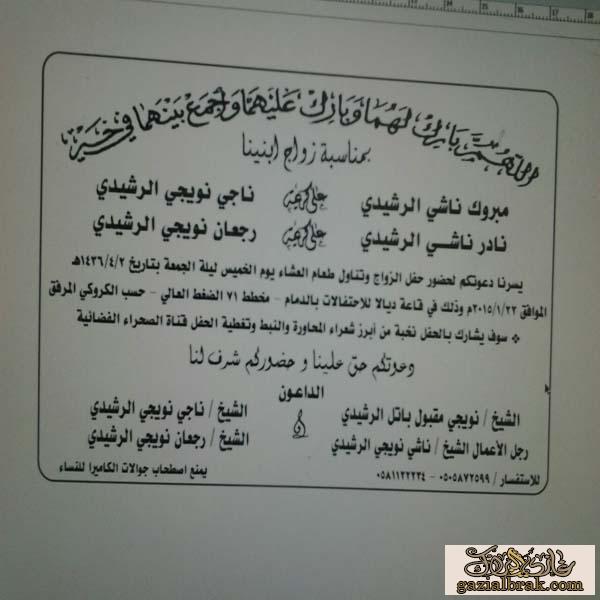 اللهم بارك لهما وبارك عليهما واجمع بينهما في خير
بمناسبة زواج ابنينا
مبروك ناشي الرشيدي على كريمة ناجي نويجي الرشيدي
نادر ناشي الرشيدي على كريمة رجعان نويجي الرشيدي
يسرنا دعوتكم لحضور حفل الزواج وتناول طعام العشاء يوم الخميس ليلة الجمعة بتاريخ ١٤٣٦/٤/٢هـ
الموافق ٢٠١٥/١/٢٢م وذلك في قاعة ديالا للاحتفالات بالدمام - مخطط ٧١ الضغط العالي - حسب الكروكي المرفق
سوف يشارك بالحفل نخبة من أبرز شعراء المحاورة والنبط وتغطية الحفل قناة الصحراء الفضائية
دعوتكم حق علينا و حضوركم شرف لنا
الداعون
الشيخ / نويجي مقبول باتل الرشيدي الشيخ / ناجي نويجي الرشيدي
رجل الأعمال الشيخ / ناشي نويجي الرشيدي الشيخ / رجعان نويجي الرشيدي
للاستفسار / ٠٥٠٥٨٧٢٥٩٩ - ٠٥٨١١٢٢٢٣٤ يمنع اصطحاب جوالات الكاميرا للنساء
gazialbrak.com